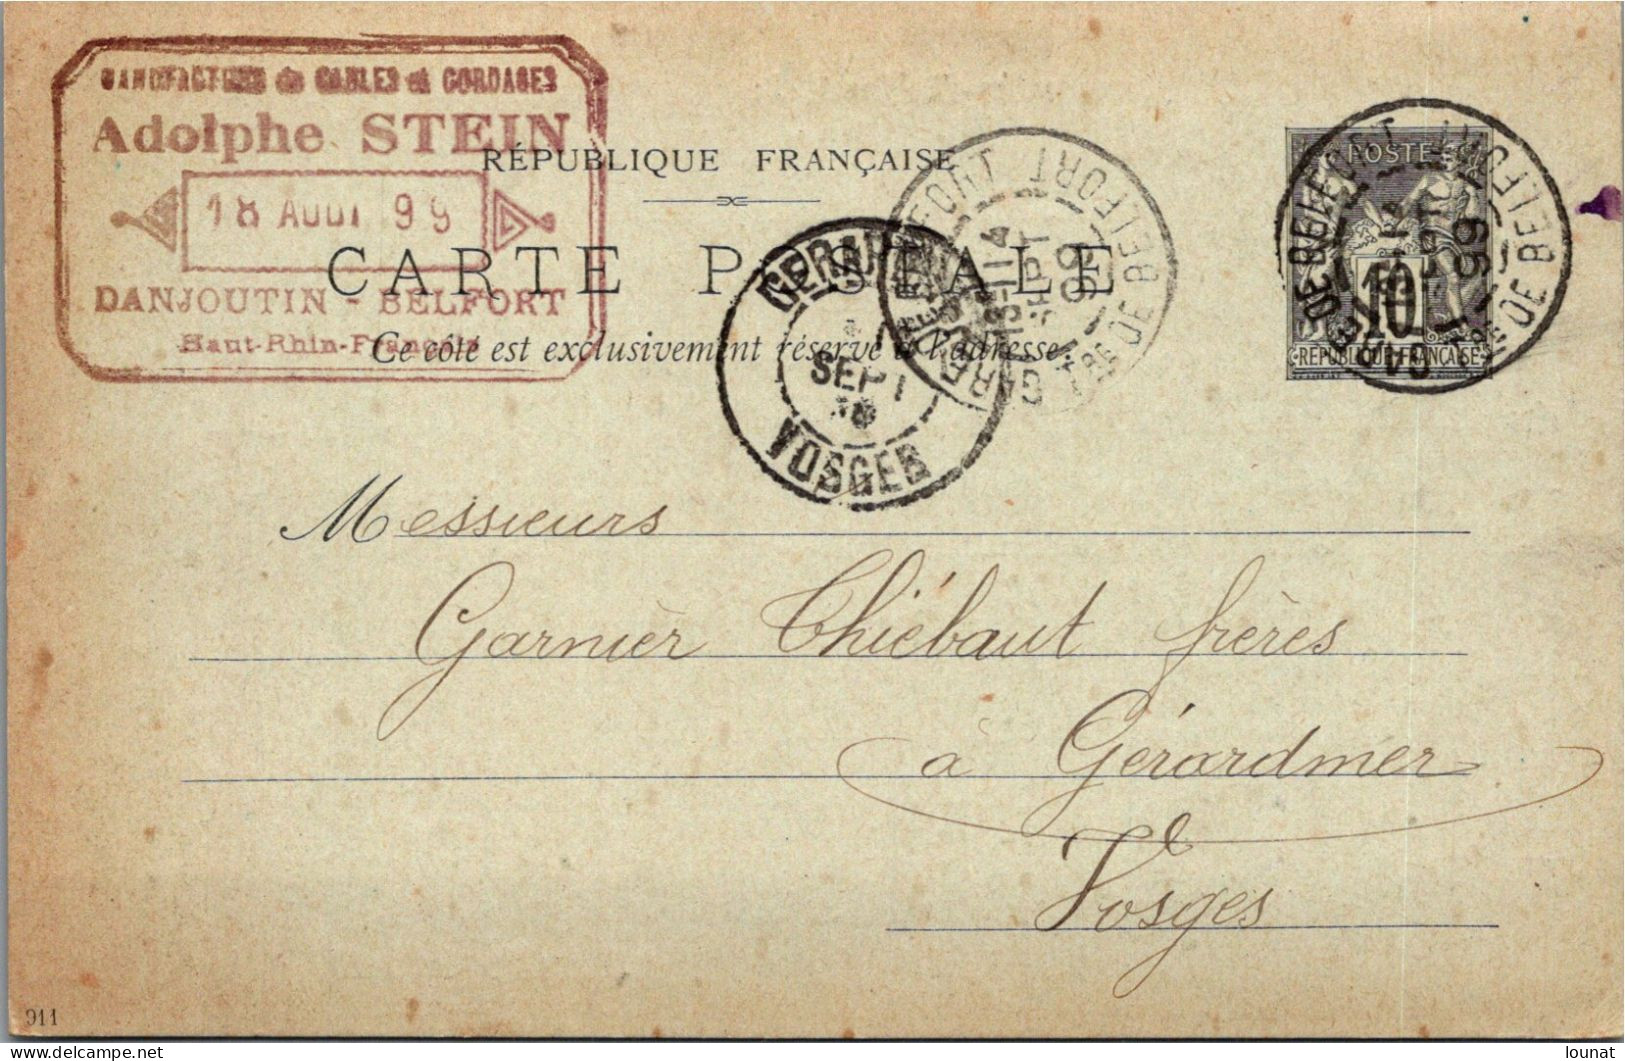 MANUFACTURE de CABLES et CORDAGES
Adolphe STEIN
18 AOUT 99
DANJOUTIN - BELFORT
Haut-Rhin-Français
RÉPUBLIQUE FRANÇAISE
CARTE POSTALE
Ce côté est exclusivement réservé à l'adresse.
POSTES
10
RÉPUBLIQUE FRANÇAISE
GARE DE BELFORT
Tre DE BELFORT
99
GARE DE BELFORT
Tre DE BELFORT
SEPT
99
GERARDMER
SEPT
VOSGES
Messieurs
Garnier Thiébaut frères
à Gérardmer
Vosges
911
lounat